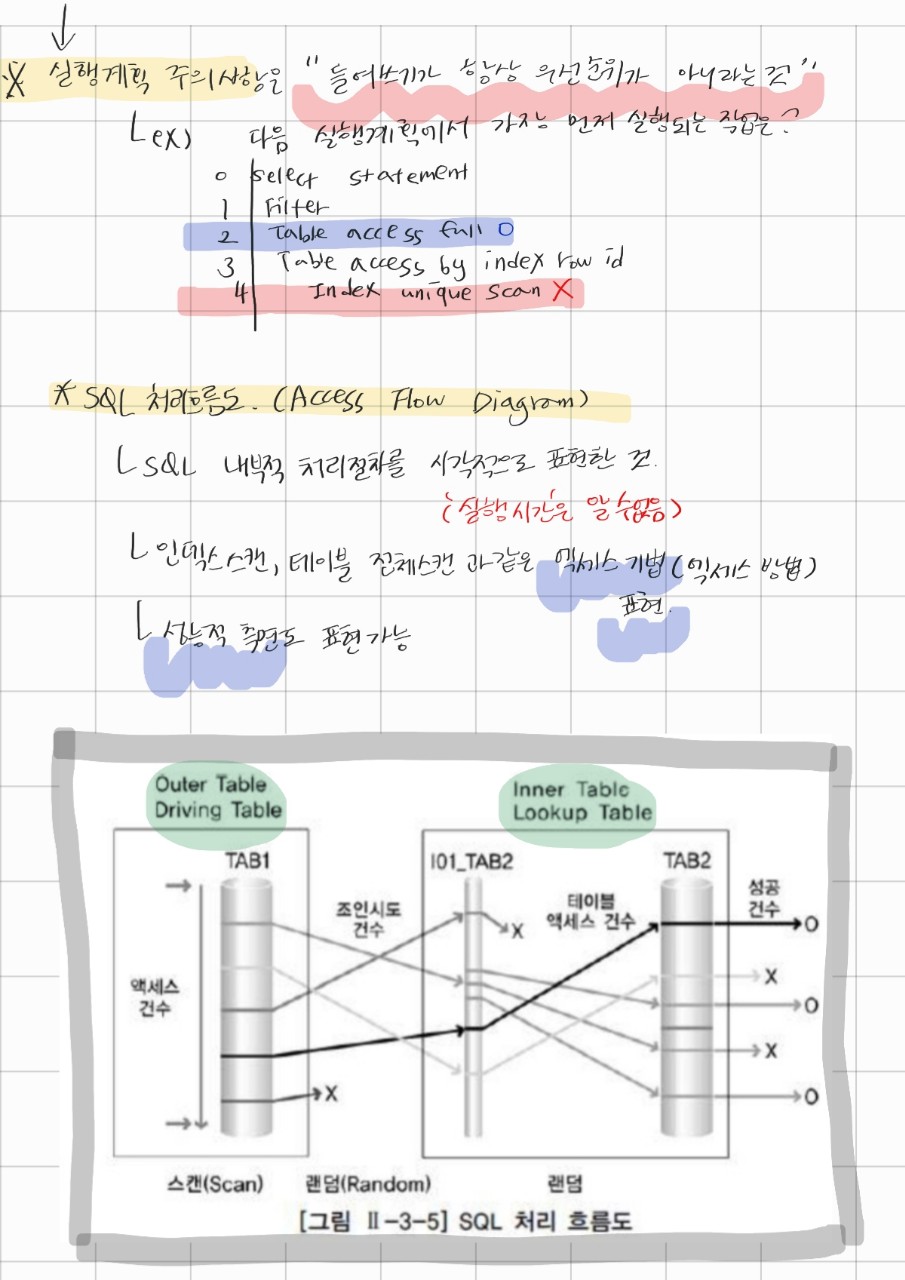 ※ 실행계획 주의사항은 "들여쓰기가 항상 우선순위가 아니라는 것"
ex) 다음 실행계획에서 가장 먼저 실행되는 작업은?
0 select statement
1 Filter
2 Table access full O
3 Table access by index row id
4 Index unique scan X
* SQL 처리흐름도. (Access Flow Diagram)
SQL 내부적 처리절차를 시각적으로 표현한 것.
(실행시간은 알 수 없음)
인덱스스캔, 테이블 전체스캔 과같은 엑세스 기법(엑세스 방법)
표현.
성능적 측면도 표현가능
Outer Table
Driving Table
Inner Table
Lookup Table
TAB1
I01_TAB2
TAB2
조인시도
건수
테이블
액세스 건수
성공
건수
액세스
건수
X
O
X
O
X
X
O
스캔(Scan) 랜덤(Random) 랜덤
[그림 Ⅱ-3-5] SQL 처리 흐름도